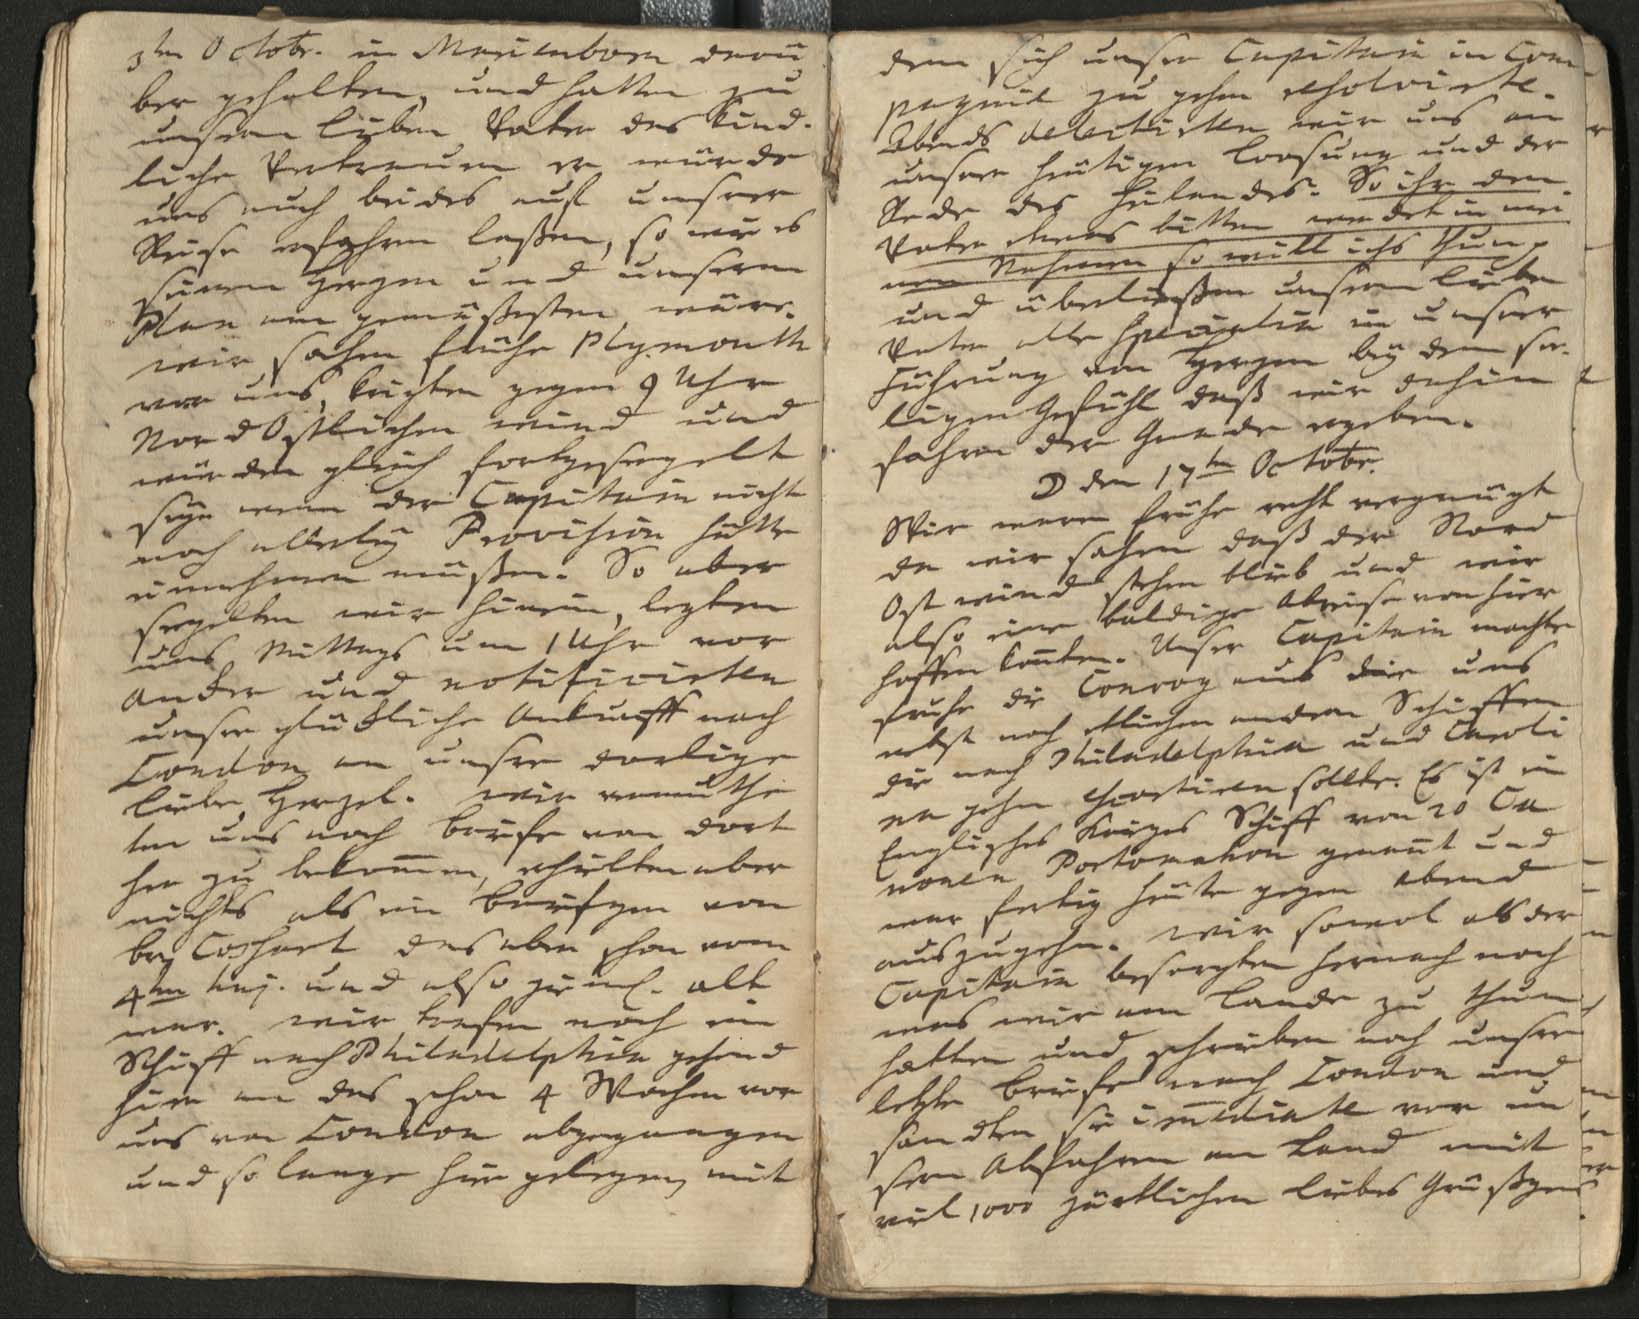 3ten Octobr. in Marienborn darü
ber gehalten, und hatten zu
unserm lieben Vater das kind-
liche Vertrauen er würde
uns auch beides auf unsrer
Reise erfahren laßen, so wie es
seinem Herzen und unserm
Plan am gemäßesten wäre.
wir sahen frühe Plymouth
vor uns, kriegten gegen 9 Uhr
NordOstlichen wind und
würden gleich fortgesegelt
seyn wenn der Capitain nicht
noch allerley Provision hätte
einnehmen müßen. So aber
segelten wir hinein, legten
uns Mittags um 1 Uhr vor
Ancker und notificirten
unsre glückliche Ankunfft nach
London an unsre dortige
liebe Herzel. wir vermuthe
ten uns noch briefe von dort
her zu bekom̄en, erhielten aber
nichts als ein briefgen von
br. Coshart das aber schon vom
4ten huj. und also ziml. alt
war. wir trafen noch ein
Schiff nach Philadelphia gehend
hier an das schon 4 Wochen vor
uns von London abgegangen
und so lange hier gelegen, mit
dem sich unser Capitain in Com-
pagnie zu gehen resolvirte.
Abends delectirten wir uns an
unsrer heutigen Loosung und der
Rede des Heilandes. So ihr den
Vater etwas bitten werdet in mei
nem Nahmen so will ichs thun,
und überließen unserm lieben
Vater alle Specialia in unsrer
Führung von Herzen bey dem see-
ligen Gefühl daß wir dahin
fahren der Gnade ergeben.
D den 17ten Octobr.
Wir waren frühe recht vergnügt
da wir sahen daß der Nord
Ost wind stehen blieb und wir
also eine baldige Abreise von hier
hoffen kon̄ten. Unser Capitain machte
fruhe die Convoy aus die uns
nebst noch etlichen andern Schiffen
die nach Philadelphia und Caroli
na gehn escortiren sollte. Es ist ein
Englisches Krieges Schiff von 20 Ca
nonen Portomahon genan̄t und
war fertig heute gegen Abend
auszugehn. wir sowol als der
Capitain besorgten hernach noch
was wir am Lande zu thun
hatten und schrieben noch unsre
letzte briefe nach London und
sandten sie im̄ediate vor un
sern Abfahren an Land mit
viel 1000 zärtlichen liebes Grüßgen